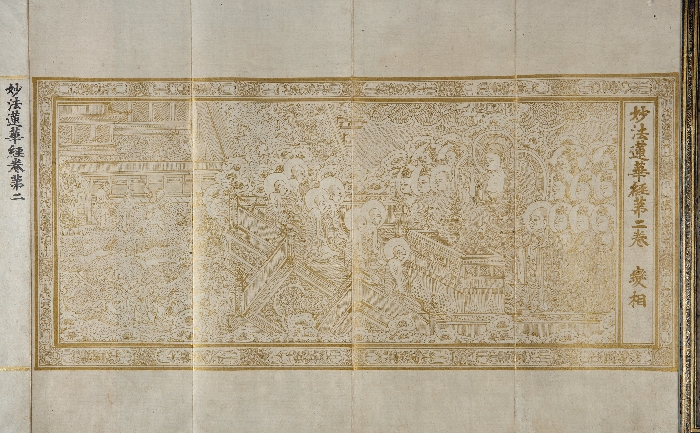 妙法蓮華經第二卷 變相
妙法蓮華經卷第二